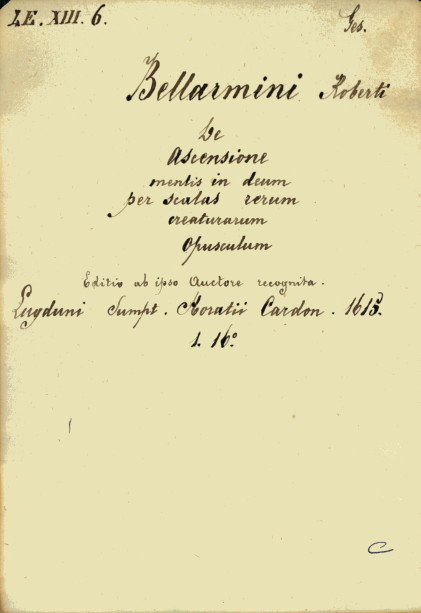 LE. XIII. 6.
Ges.
Bellarmini Roberti
De
Ascensione
mentis in deum
per scalas rerum
creaturarum
Opusculum
Editio ab ipso Auctore recognita.
Lugduni Sumpt. Horatii Cardon. 1615.
1. 16°
C